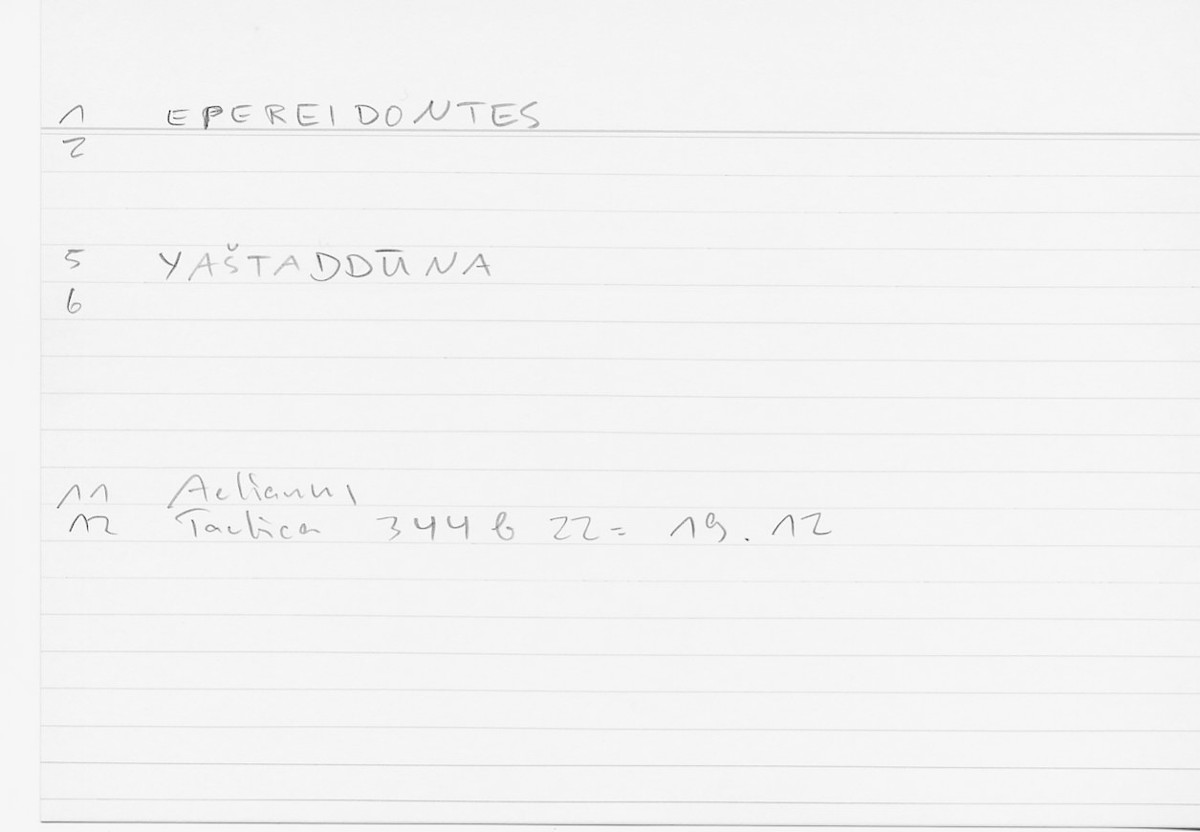 1 EPEREIDONTES
2
5 YAŠTADDŪNA
6
11 Aelianus
12 Tactica 344 b 22 = 19.12